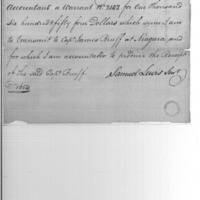 Accountant a Warrant No. 2142 for One thousand
six hundred & fifty four Dollars which sum I am
to transmit to Capt. James Bruff at Niagara, and
for which I am accountable to produce the Receipt
of the said Capt. Bruff.
Samuel Lewis Junr
$ 1654